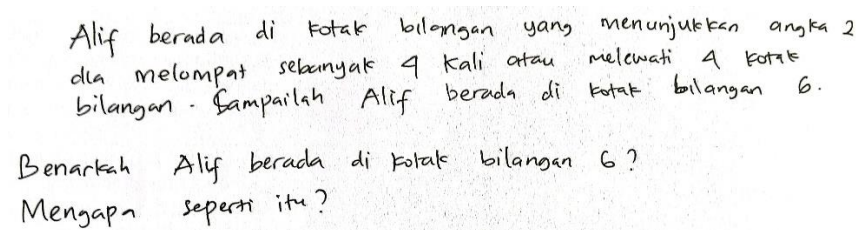 Alif berada di kotak bilangan yang menunjukkan angka 2
dia melompat sebanyak 4 kali atau melewati 4 kotak
bilangan. Sampailah Alif berada di kotak bilangan 6.
Benarkah Alif berada di kotak bilangan 6?
Mengapa seperti itu?